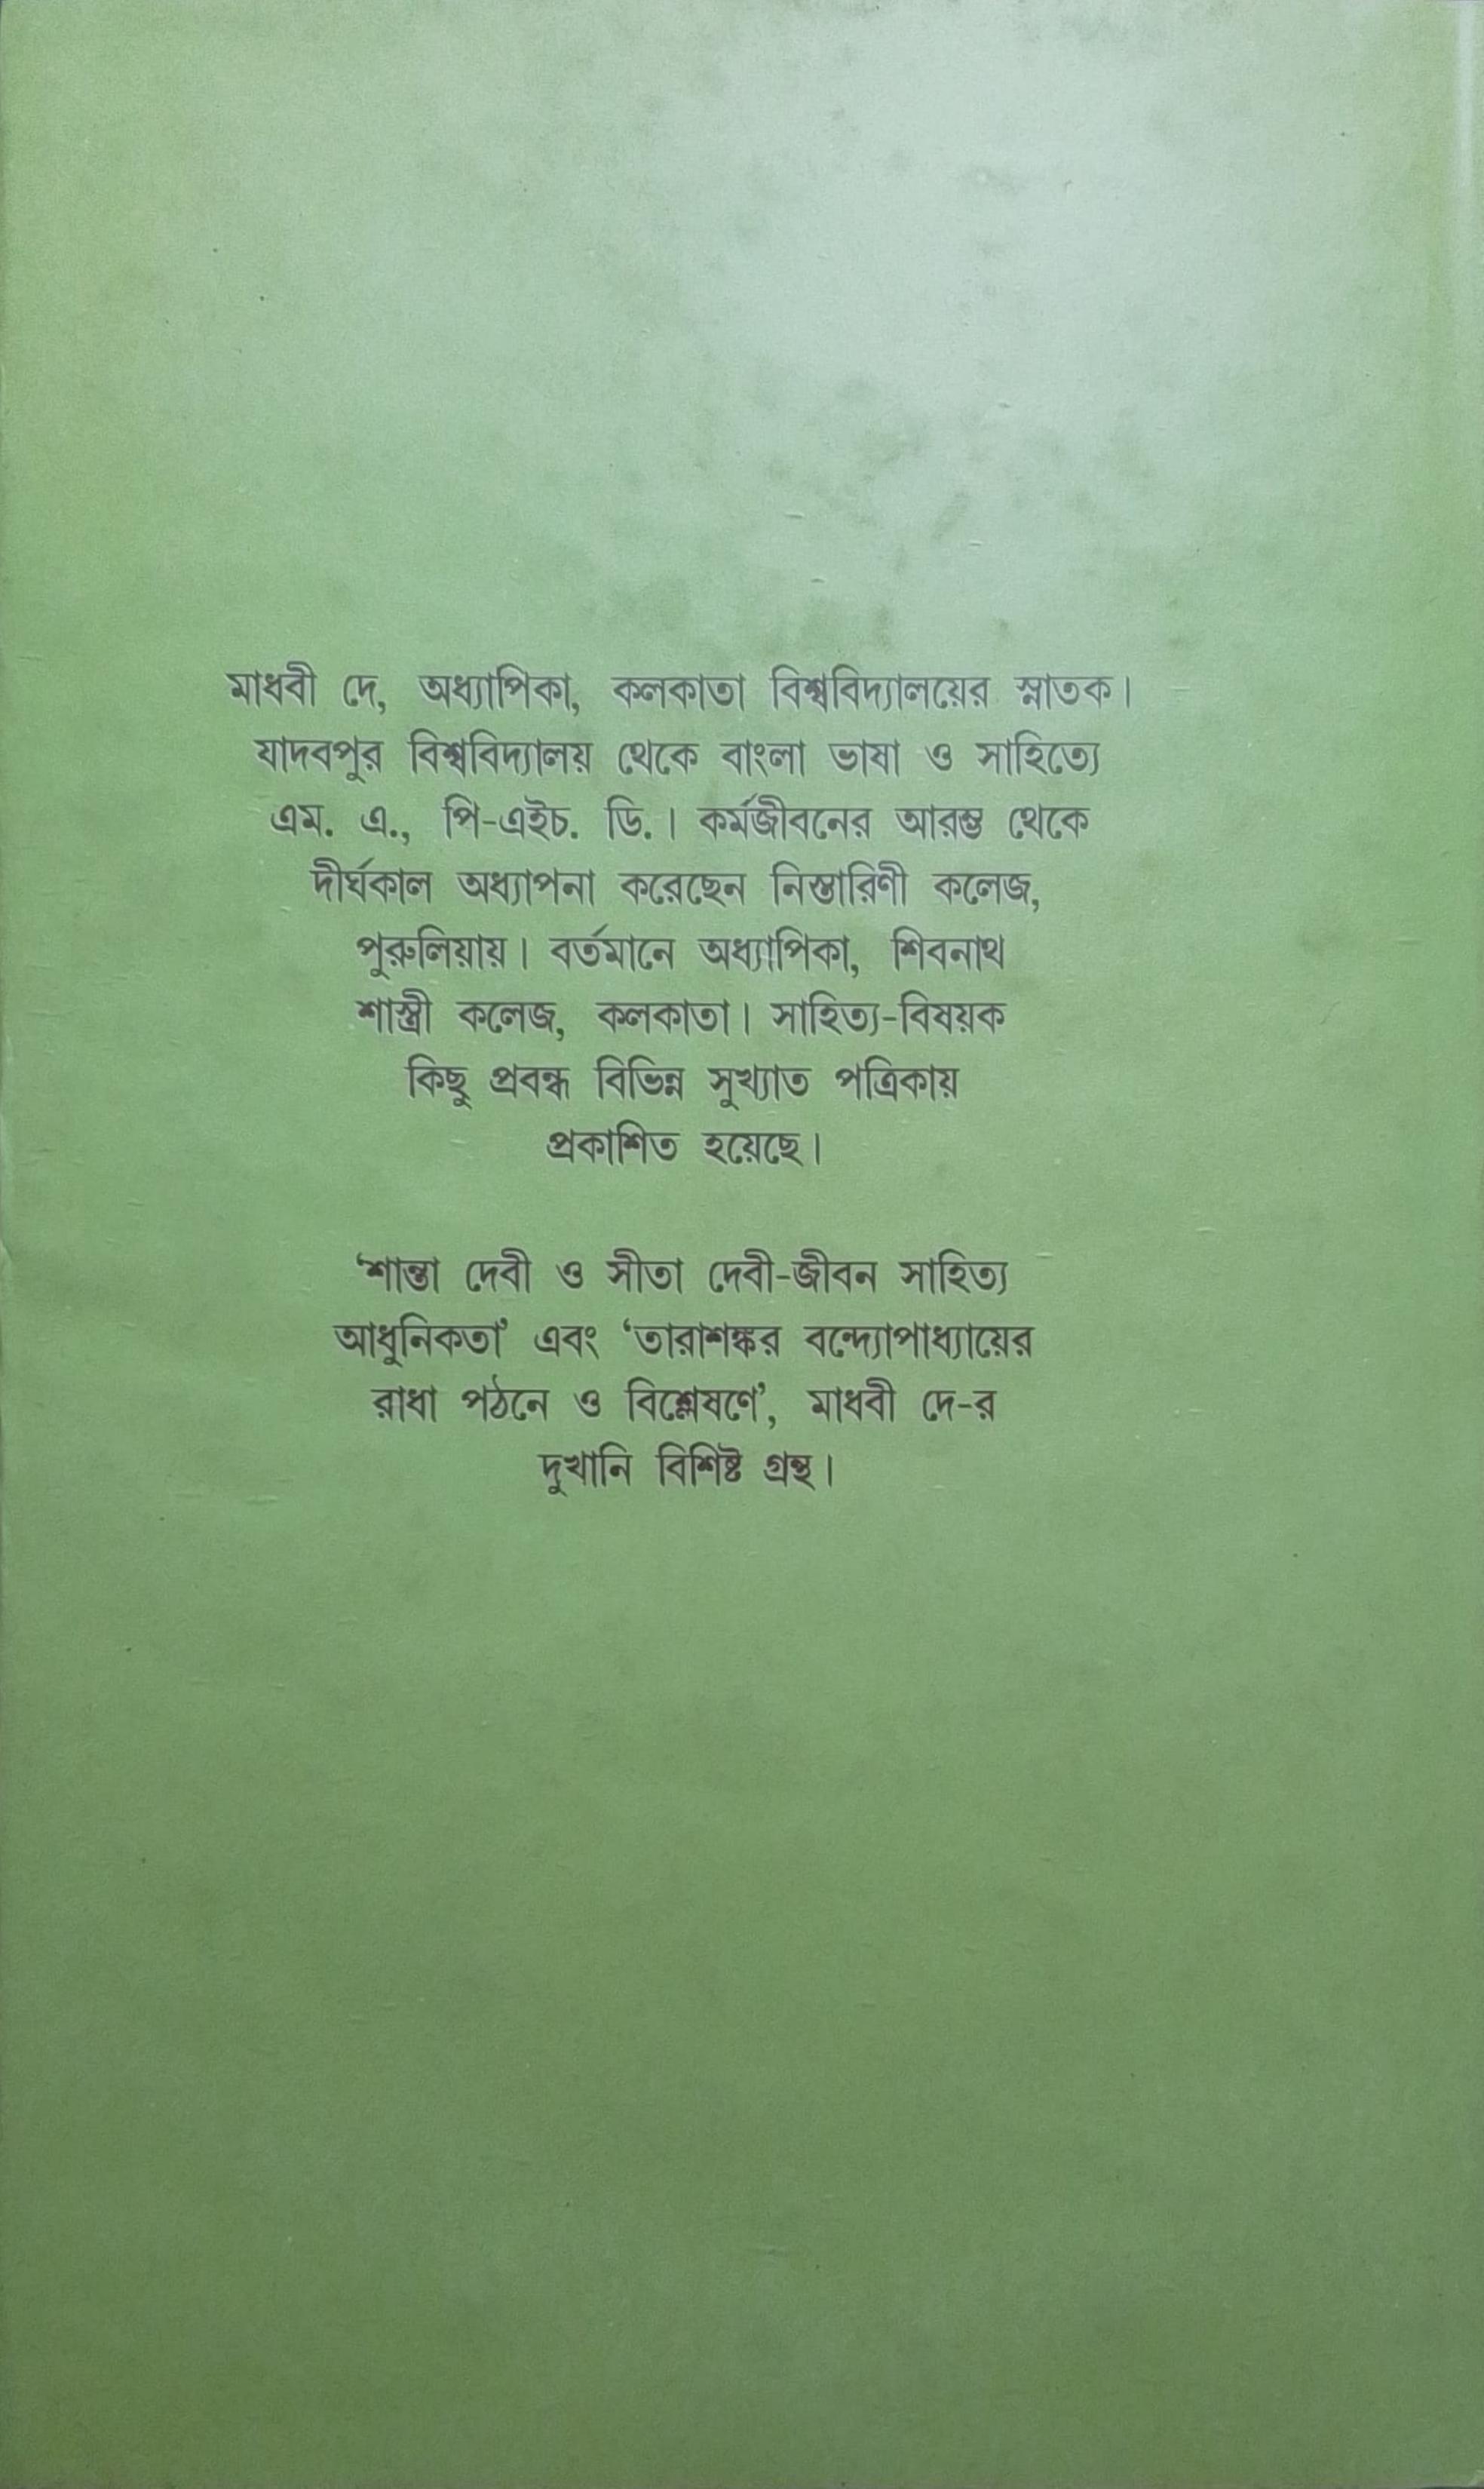 মাধবী দে, অধ্যাপিকা, কলকাতা বিশ্ববিদ্যালয়ের স্নাতক।
যাদবপুর বিশ্ববিদ্যালয় থেকে বাংলা ভাষা ও সাহিত্যে
এম. এ., পি-এইচ. ডি.। কর্মজীবনের আরম্ভ থেকে
দীর্ঘকাল অধ্যাপনা করেছেন নিস্তারিণী কলেজ,
পুরুলিয়ায়। বর্তমানে অধ্যাপিকা, শিবনাথ
শাস্ত্রী কলেজ, কলকাতা। সাহিত্য-বিষয়ক
কিছু প্রবন্ধ বিভিন্ন সুখ্যাত পত্রিকায়
প্রকাশিত হয়েছে।
‘শান্তা দেবী ও সীতা দেবী-জীবন সাহিত্য
আধুনিকতা’ এবং ‘তারাশঙ্কর বন্দ্যোপাধ্যায়ের
রাধা পঠনে ও বিশ্লেষণে’, মাধবী দে-র
দুখানি বিশিষ্ট গ্রন্থ।